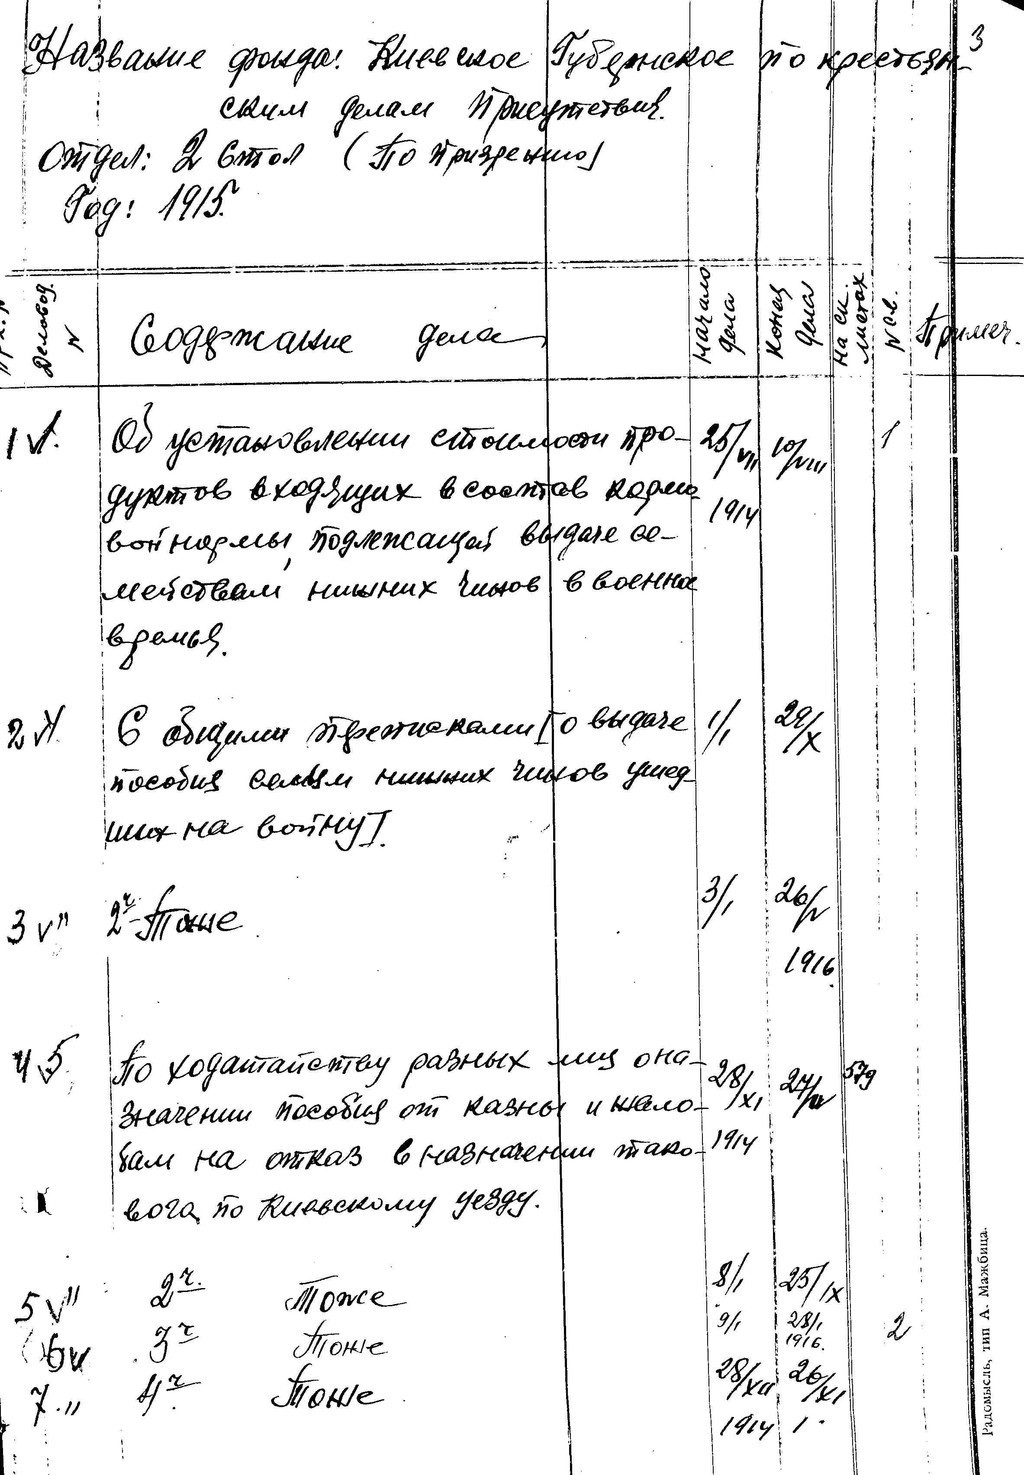 3
Название фонда: Киевское Губернское по крестьян-
ским делам Присутствия.
Отдел: 2 Стол (По призрению)
Год: 1915.
Деловод. N
Содержание дела
Начало дела
Конец дела
На ск. листах
N св.
Примеч.
1 V 1. Об установлении стоимости про- 25/VII 10/VIII 1
дуктов входящих в состав кормо 1914
вой нормы, подлежащей выдаче се-
мействам нижних чинов в военно
время.
2 V 1. С общими переписками [о выдаче 1/I 29/X
пособия семьям нижних чинов ушед
ших на войну].
3 V " 2ч- Тоже 3/I 26/V
1916.
4 5. По ходатайству разных лиц о на- 28/XI 27/IV 579
значении пособия от казны и жало- 1914
бам на отказ в назначении тако-
вога по Киевскому уезду.
5 V " 2ч. Тоже 8/I 25/IX
6 V 3ч Тоже 9/I 28/I 1916. 2
7. " 4ч. Тоже 28/XII 26/XI
1914
Радомысль, тип А. Мажбица.